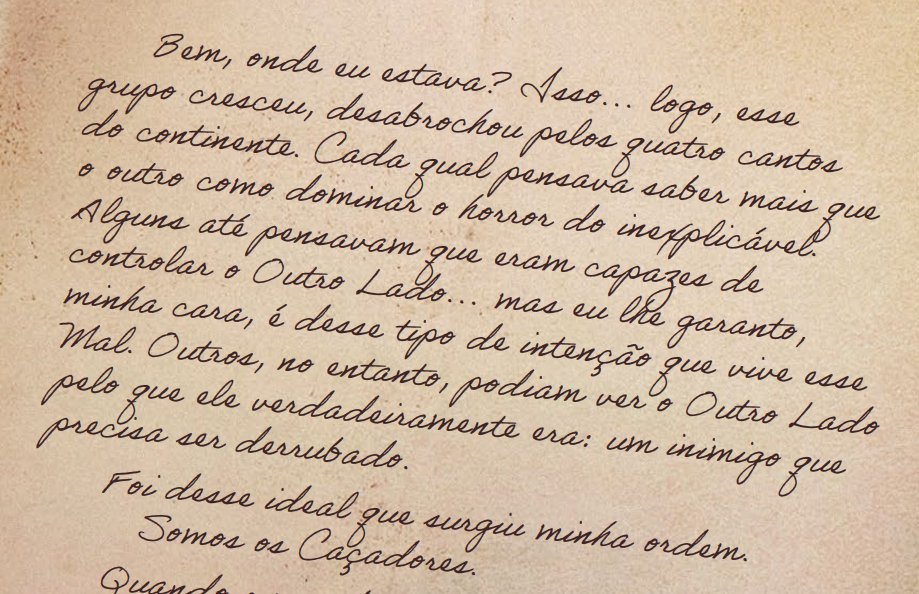 Bem, onde eu estava? Isso... logo, esse
grupo cresceu, desabrochou pelos quatro cantos
do continente. Cada qual pensava saber mais que
o outro como dominar o horror do inexplicável.
Alguns até pensavam que eram capazes de
controlar o Outro Lado... mas eu lhe garanto,
minha cara, é desse tipo de intenção que vive esse
Mal. Outros, no entanto, podiam ver o Outro Lado
pelo que ele verdadeiramente era: um inimigo que
precisa ser derrubado.
Foi desse ideal que surgiu minha ordem.
Somos os Caçadores.
Quando